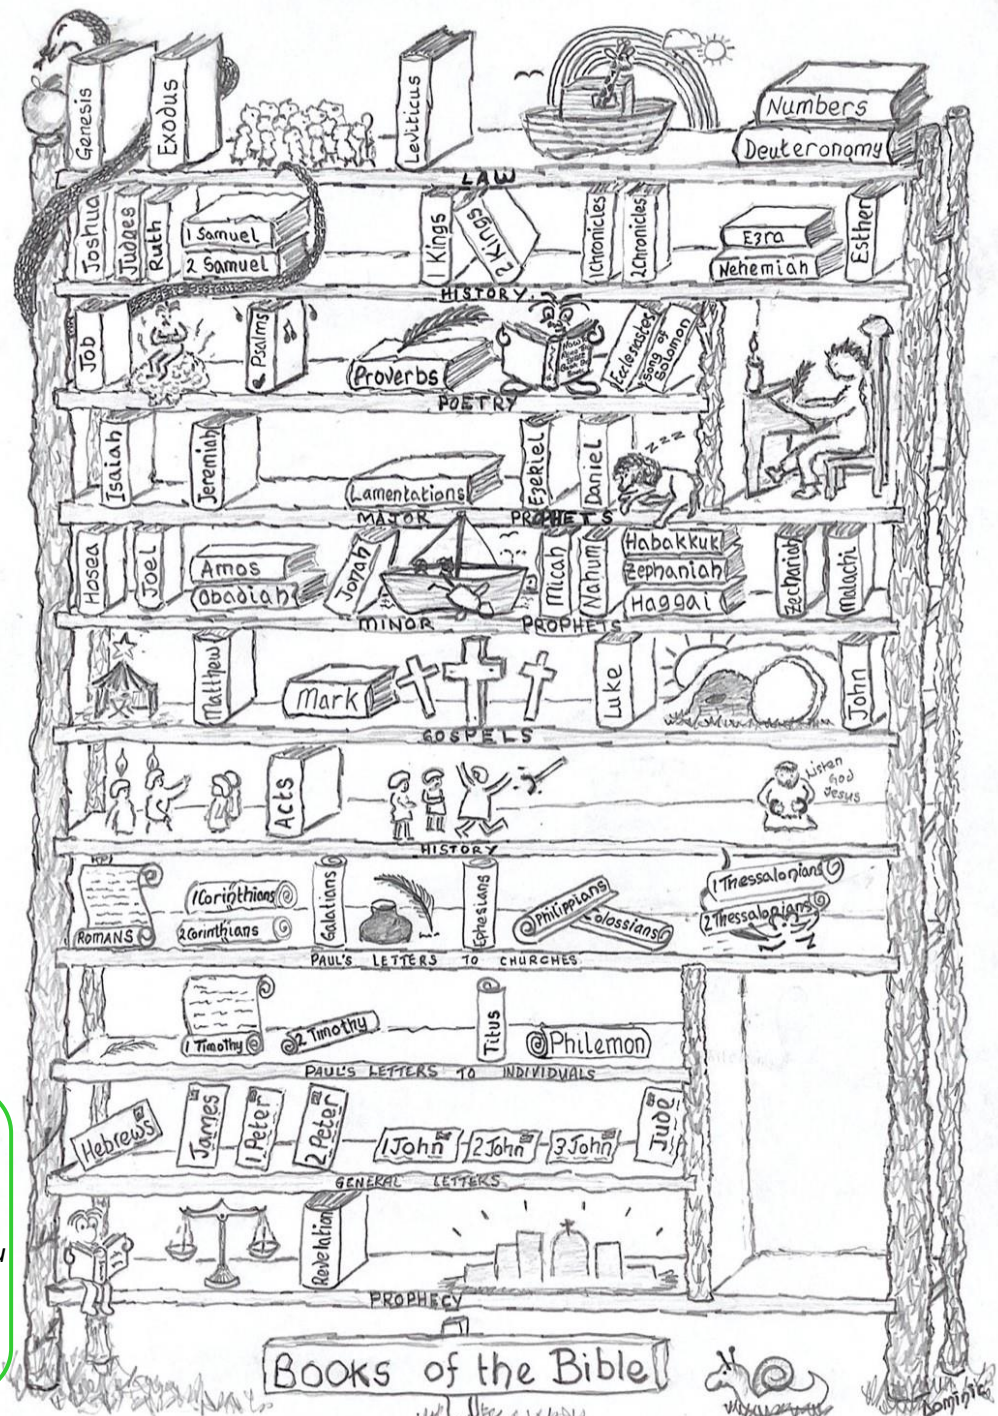 Genesis
Exodus
Leviticus
Numbers
Deuteronomy
LAW
Joshua
Judges
Ruth
1 Samuel
2 Samuel
1 Kings
2 Kings
1 Chronicles
2 Chronicles
Ezra
Nehemiah
Esther
HISTORY
Job
Psalms
Proverbs
Ecclesiastes
Song of
Solomon
POETRY
Isaiah
Jeremiah
Lamentations
Ezekiel
Daniel
zzz
MAJOR PROPHETS
Hosea
Joel
Amos
Obadiah
Jonah
Micah
Nahum
Habakkuk
Zephaniah
Haggai
Zechariah
Malachi
MINOR PROPHETS
Matthew
Mark
Luke
John
GOSPELS
Acts
Listen
God
Jesus
HISTORY
ROMANS
1 Corinthians
2 Corinthians
Galatians
Ephesians
Philippians
Colossians
1 Thessalonians
2 Thessalonians
PAUL'S LETTERS TO CHURCHES
1 Timothy
2 Timothy
Titus
Philemon
PAUL'S LETTERS TO INDIVIDUALS
Hebrews
James
1 Peter
2 Peter
1 John
2 John
3 John
Jude
GENERAL LETTERS
Revelation
PROPHECY
BOOKS of the Bible
Dominic